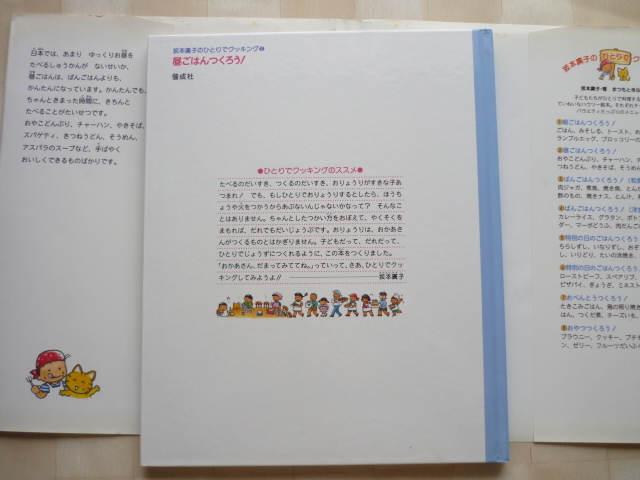 日本では、あまり ゆっくりお昼を
たべるしゅうかんが ないせいか、
昼ごはんは、ばんごはんよりも、
かんたんになっています。かんたんでも、
ちゃんときまった時間に、きちんと
たべることがたいせつです。
おやこどんぶり、チャーハン、やきそば、
スパゲティ、きつねうどん、そうめん、
アスパラのスープなど、手ばやく
おいしくできるものばかりです。
坂本廣子のひとりでクッキング2
昼ごはんつくろう!
偕成社
●ひとりでクッキングのススメ●
たべるのだいすき、つくるのだいすき、おりょうりがすきな子あ
つまれ! でも、もしひとりでおりょうりするとしたら、ほうち
ょうや火をつかうからあぶないんじゃないかなって? そんなこ
とはありません。ちゃんとしたつかい方をおぼえて、やくそくを
まもれば、だれでもだいじょうぶです。おりょうりは、おかあさ
んがつくるものとはかぎりません。子どもだって、だれだって、
ひとりでじょうずにつくれるように、この本をつくりました。
「おかあさん、だまってみててね。」っていって、さあ、ひとりでクッ
キングしてみようよ!! ──坂本廣子
坂本廣子の ひとりで ク
坂本廣子・著 まつもときな
子どもたちがひとりで料理する
ていねいなハウツー絵本。それぞれテー
バラエティたっぷりのメニュー
1朝ごはんつくろう!
ごはん、みそしる、トースト、お
ランブルエッグ、ブロッコリーの
2昼ごはんつくろう!
おやこどんぶり、チャーハン、や
つねうどん、やきそば、そうめん
3ばんごはんつくろう!
肉ジャガ、煮魚、焼き魚、とん
酢のもの、焼きナス、とん汁、
4ばんごはんつくろう!
カレーライス、グラタン、ポト
ダー、マーボどうふ、肉だんご
5特別の日のごはんつくろう
ちらしずし、いなりずし、おぞ
し、いりどり、たいの浜焼き、
6特別の日のごはんつくろう
ローストビーフ、スペアリブ、
ピザパイ、ぎょうざ、ミネスト
7おべんとうつくろう!
たきこみごはん、鳥の照り焼き
はん、つくだ煮、チーズいも、
8おやつつくろう!
ブラウニー、クッキー、プチ
ン、ゼリー、フルーツだいふく